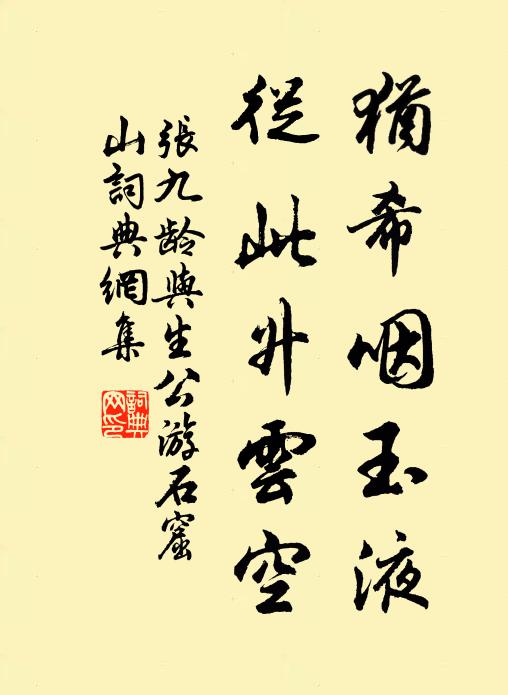 猶希咽玉液
從此升雲空
張九齡與生公游石窟
山詞典網集
詞典
网印